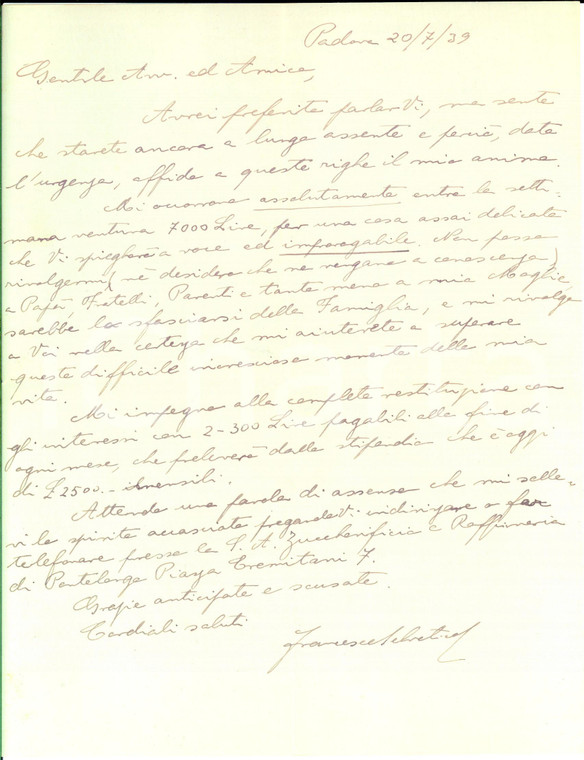 Padova 20/7/39
Gentile Avv. ed Amico,
Avrei preferito parlarVi, ma sento
che starete ancora a lungo assente e perciò, data
l'urgenza, affido a queste righe il mio animo.
Mi occorrono assolutamente entro la setti-
mana ventura 7000 Lire, per una cosa assai delicata
che Vi spiegherò a voce ed improrogabile. Non posso
rivolgermi (nè desidero che ne vengano a conoscenza)
a Papà, Fratelli, Parenti e tanto meno a mia Moglie,
sarebbe lo sfasciarsi della Famiglia, e mi rivolgo
a Voi nella certezza che mi aiuterete a superare
questo difficile increscioso momento della mia
vita.
Mi impegno alla completa restituzione con
gli interessi con 2-300 Lire pagabili alla fine di
ogni mese, che preleverò dallo stipendio che è oggi
di £ 2500.- mensili.
Attendo una parola di assenso che mi solle-
vi lo spirito accasciato pregandoVi indirizzare o far
telefonare presso la S. A. Zuccherificio e Raffineria
di Pontelongo Piazza Eremitani 7.
Grazie anticipate e scusate.
Cordiali saluti
Francesco